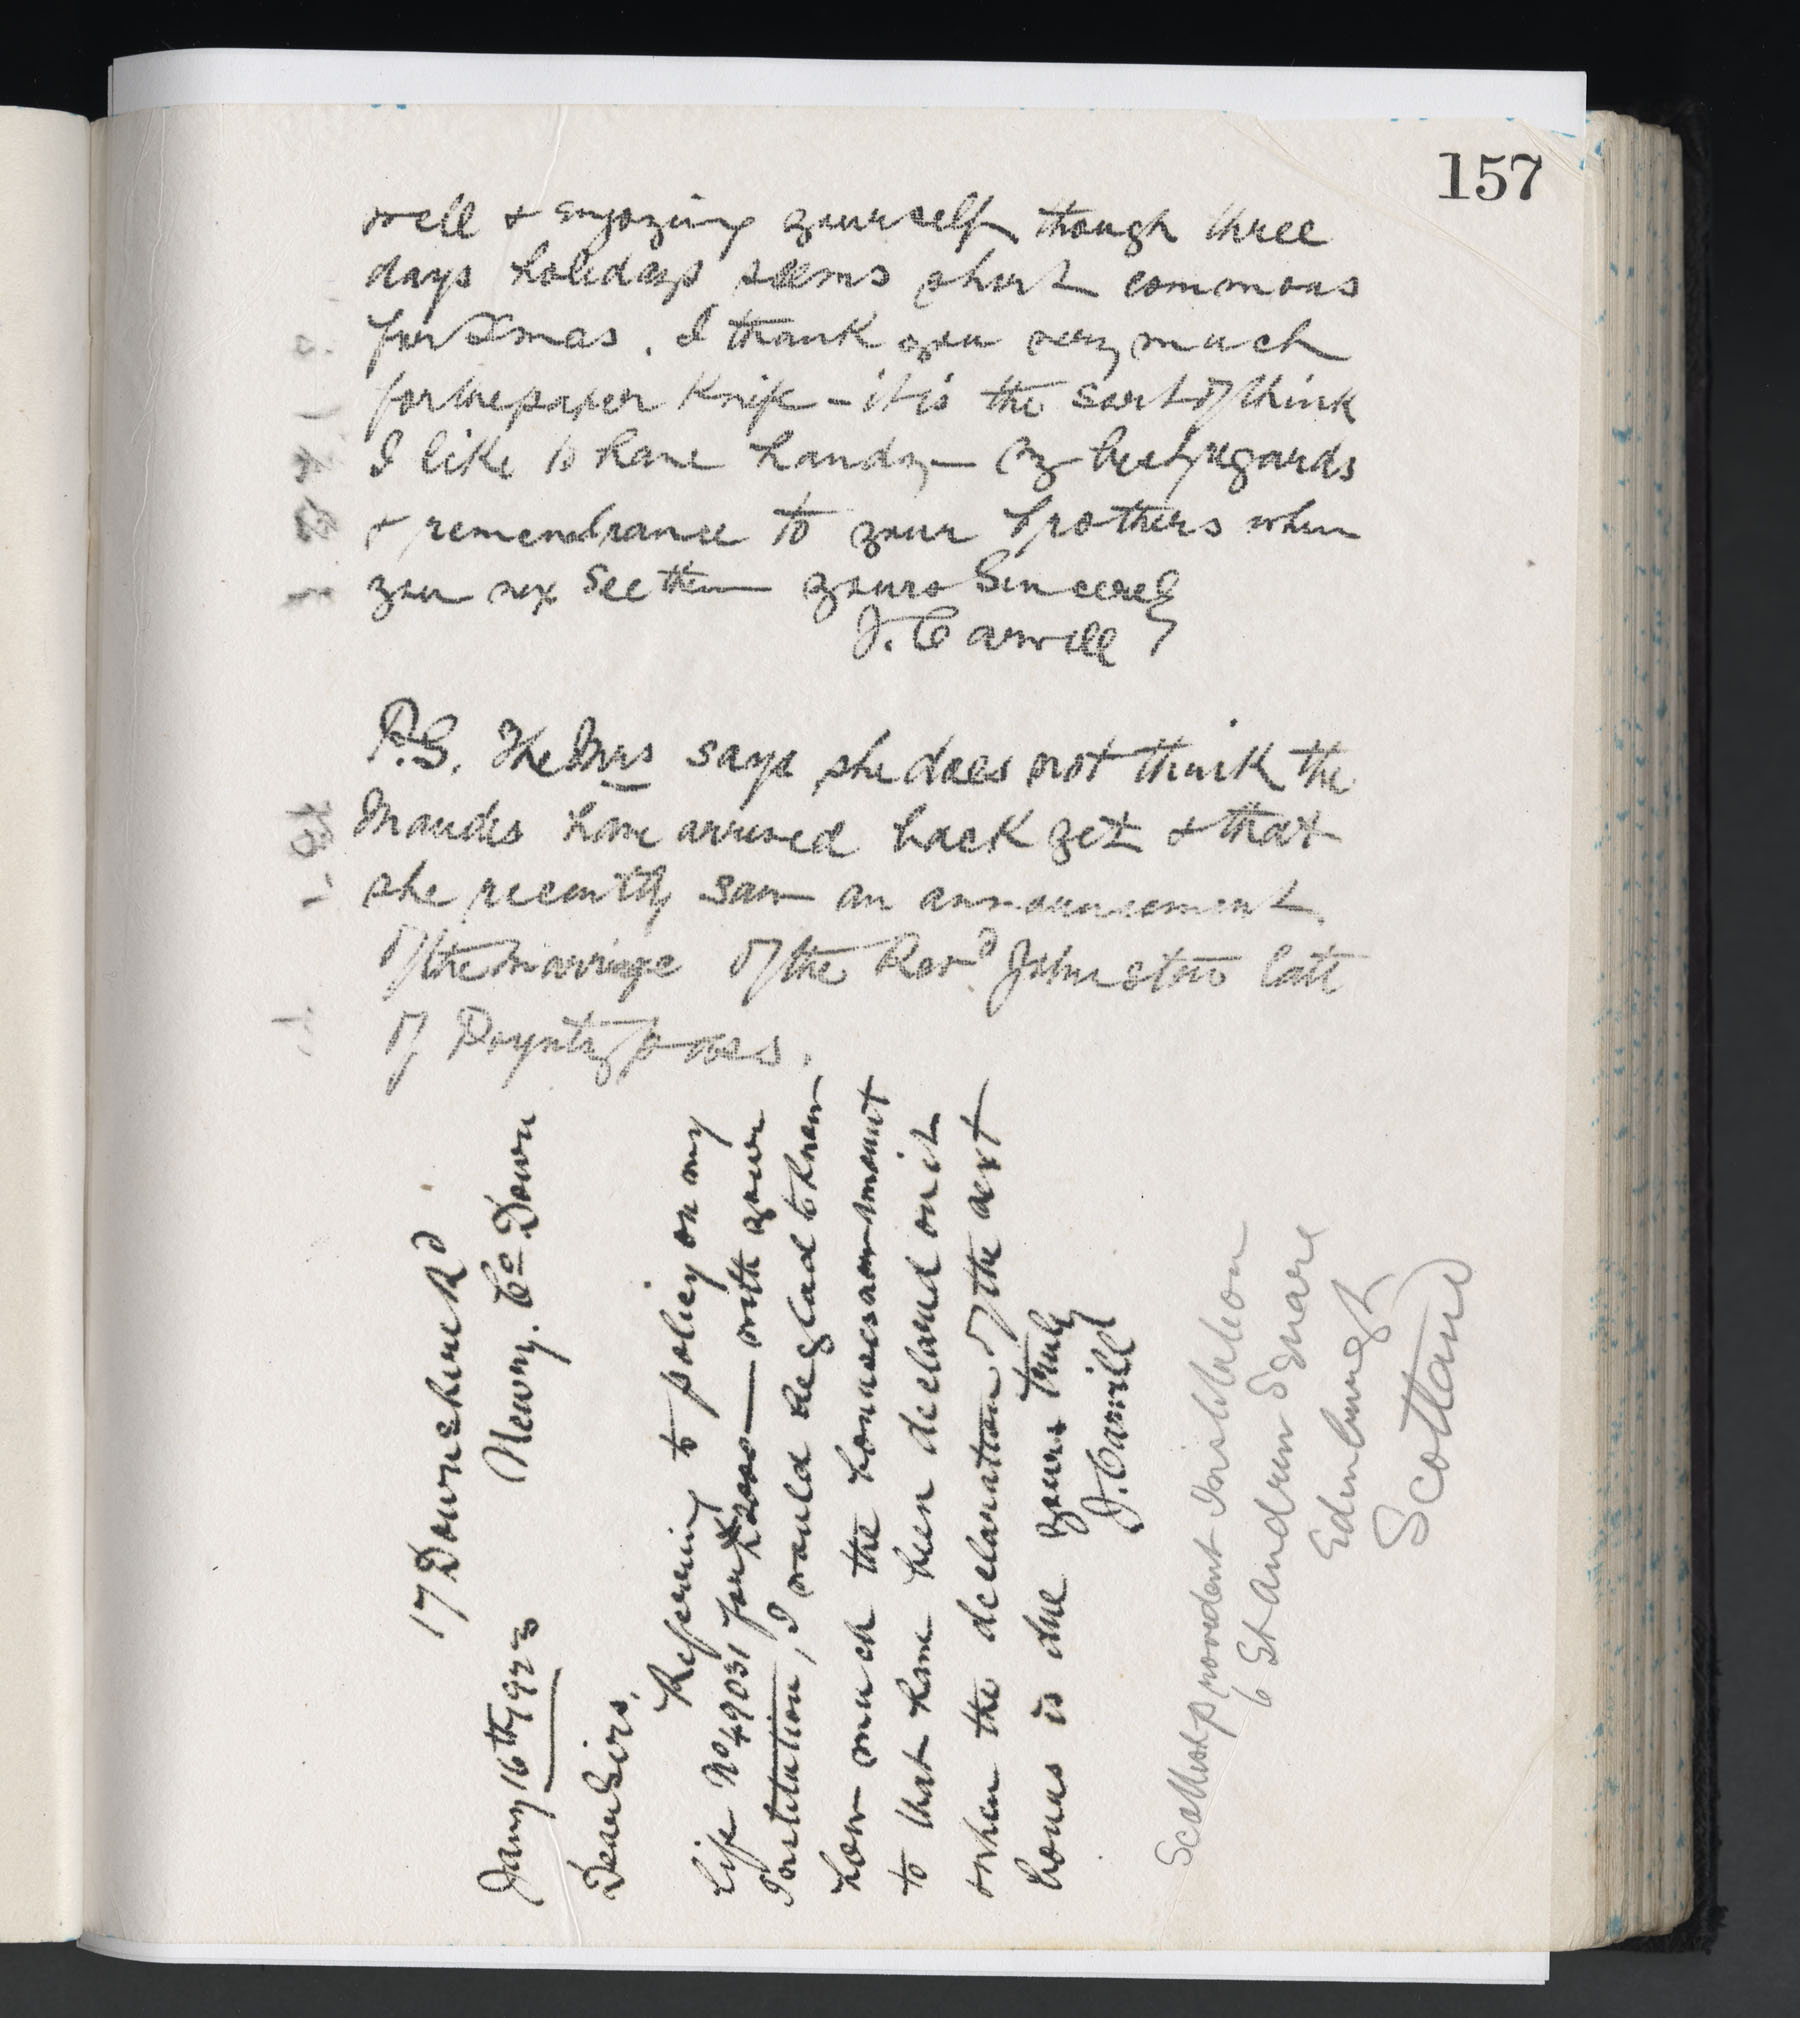 157
well & enjoying yourself though three
days holidays seems short commons
for Xmas. I thank you very much
for the paper Knife - it is the sort of think
I like to have handy - My best regards
& remembrance to your brothers when
you nex see them yours Sincerely
J. Carvill
P.S. The Mrs says she does not think the
Maudes have arrived back yet & that
she recently saw an announcement
of the marriage of the Revd Johnston late
of Poyntzpass.
17 Downshire Rd
Newry. Co Down
Jany 16th 1923
Dear Sirs,
Referring to policy on my
Life No 49031 for £2000 — with your
Institution, I would be glad to know
how much the bonuses amount
to that have been declared on it
& when the declaration of the next
bonus is due yours truly
J. Carvill
Scottish provident Institution
6 St Andrew Square
Edinburgh
Scotland